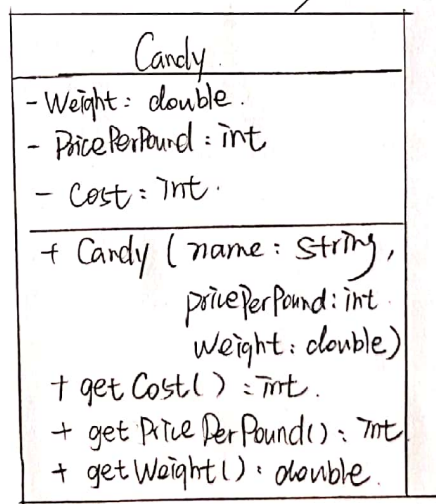 Candy.
- Weight: double.
- PricePerPound: int
- Cost: int.
+ Candy (name: string,
pricePerPound: int
weight: double)
+ getCost(): int.
+ getPricePerPound(): int
+ getWeight(): double.